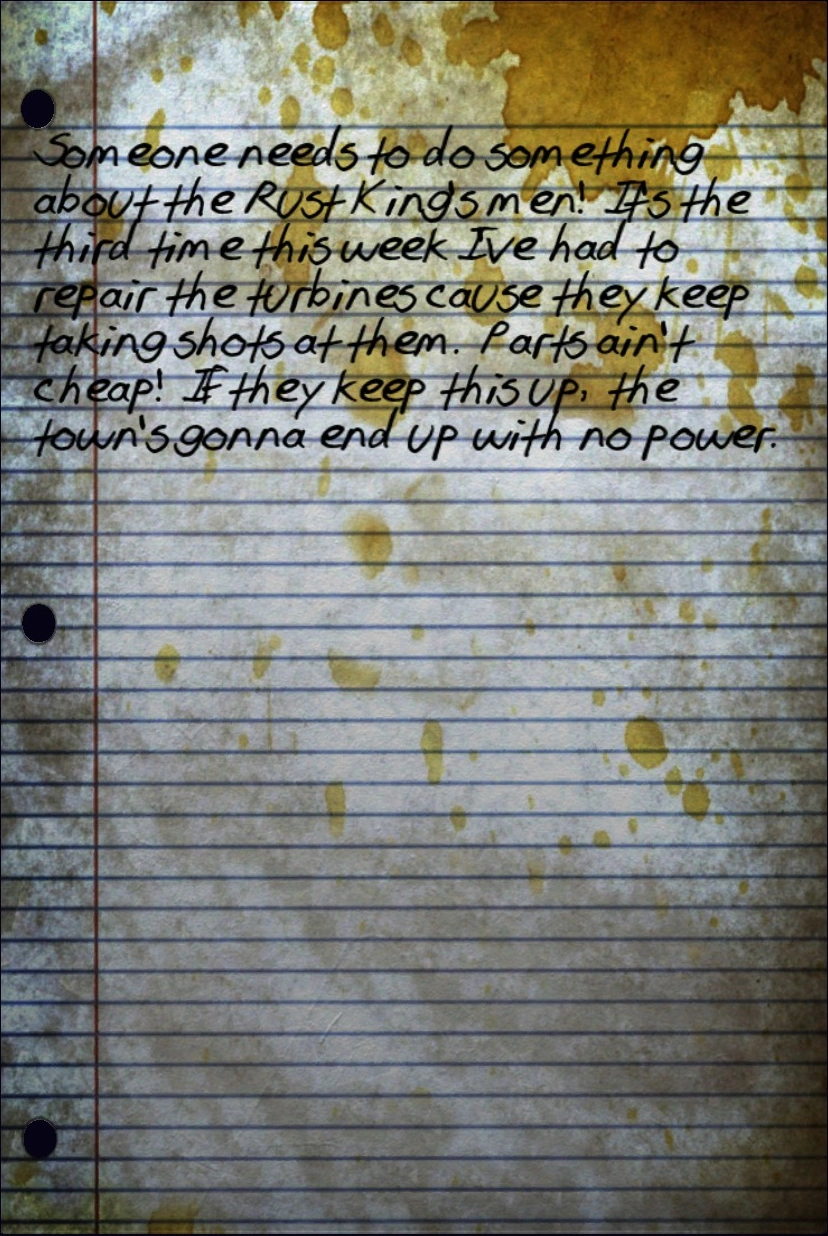 Someone needs to do something
about the Rust King's men! It's the
third time this week I've had to
repair the turbines cause they keep
taking shots at them. Parts ain't
cheap! If they keep this up, the
town's gonna end up with no power.